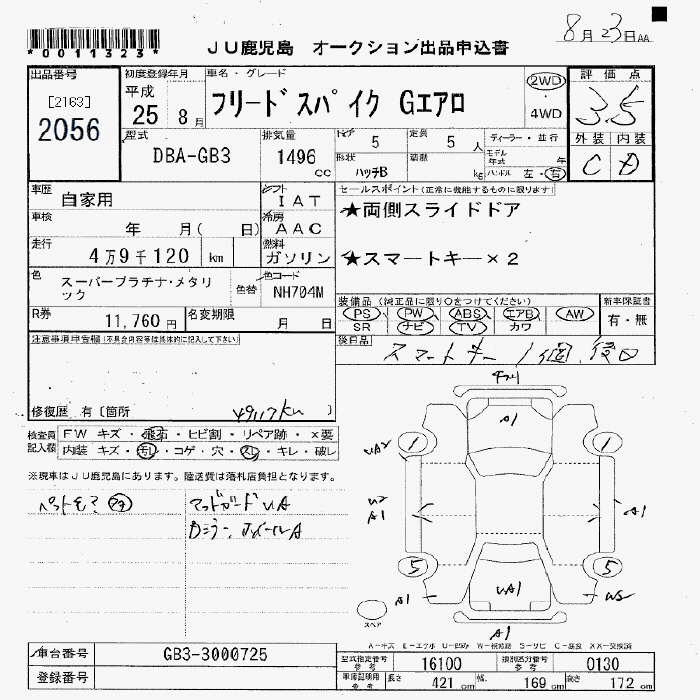 8月23日AA
*0011323*
JU鹿児島 オークション出品申込書
出品番号
[2163]
2056
初度登録年月
平成
25 8月
車名・グレード
フリードスパイク Gエアロ
2WD
4WD
評価点
3.5
外装 内装
C D
型式
DBA-GB3
排気量
1496
cc
ドア
5
定員
5人
ディーラー・並行
形状
ハッチB
積載
kg
モデル
年式 年
ハンドル 左・右
車歴
自家用
シフト
IAT
車検
年 月( 日)
冷房
AAC
走行
4万9千120 km
燃料
ガソリン
色
スーパープラチナ・メタリ
ック
色替
色コード
NH704M
R券
11,760円
名変期限
月 日
セールスポイント(正常に機能するものに限ります)
★両側スライドドア
★スマートキー×2
装備品(純正品に限り○をつけてください)
PS PW ABS エアB AW
SR ナビ TV カワ
新車保証書
有・無
後日品
スマートキー1個、後日
注意事項申告欄(不具合内容等は具体的に記入して下さい)
修復歴 有〔箇所 〕
49117km
検査員
記入欄
FW キズ・飛石・ヒビ割・リペア跡・×要
内装 キズ・汚レ・コゲ・穴・スレ・キレ・破レ
※現車はJU鹿児島にあります。陸送費は落札店負担となります。
マッドガードUA
A1
1 1
UA2
U2
A1
A1
5 5
A1
UA1
A1
スペア
A-キズ E-エクボ U-凹み W-補修跡 S-サビ C-腐食 XX-交換済
車台番号
GB3-3000725
登録番号
型式指定番号
参考
16100
類別区分番号
参考
0130
車庫証明用
参考
長さ 421cm
幅 169cm
高さ 172cm